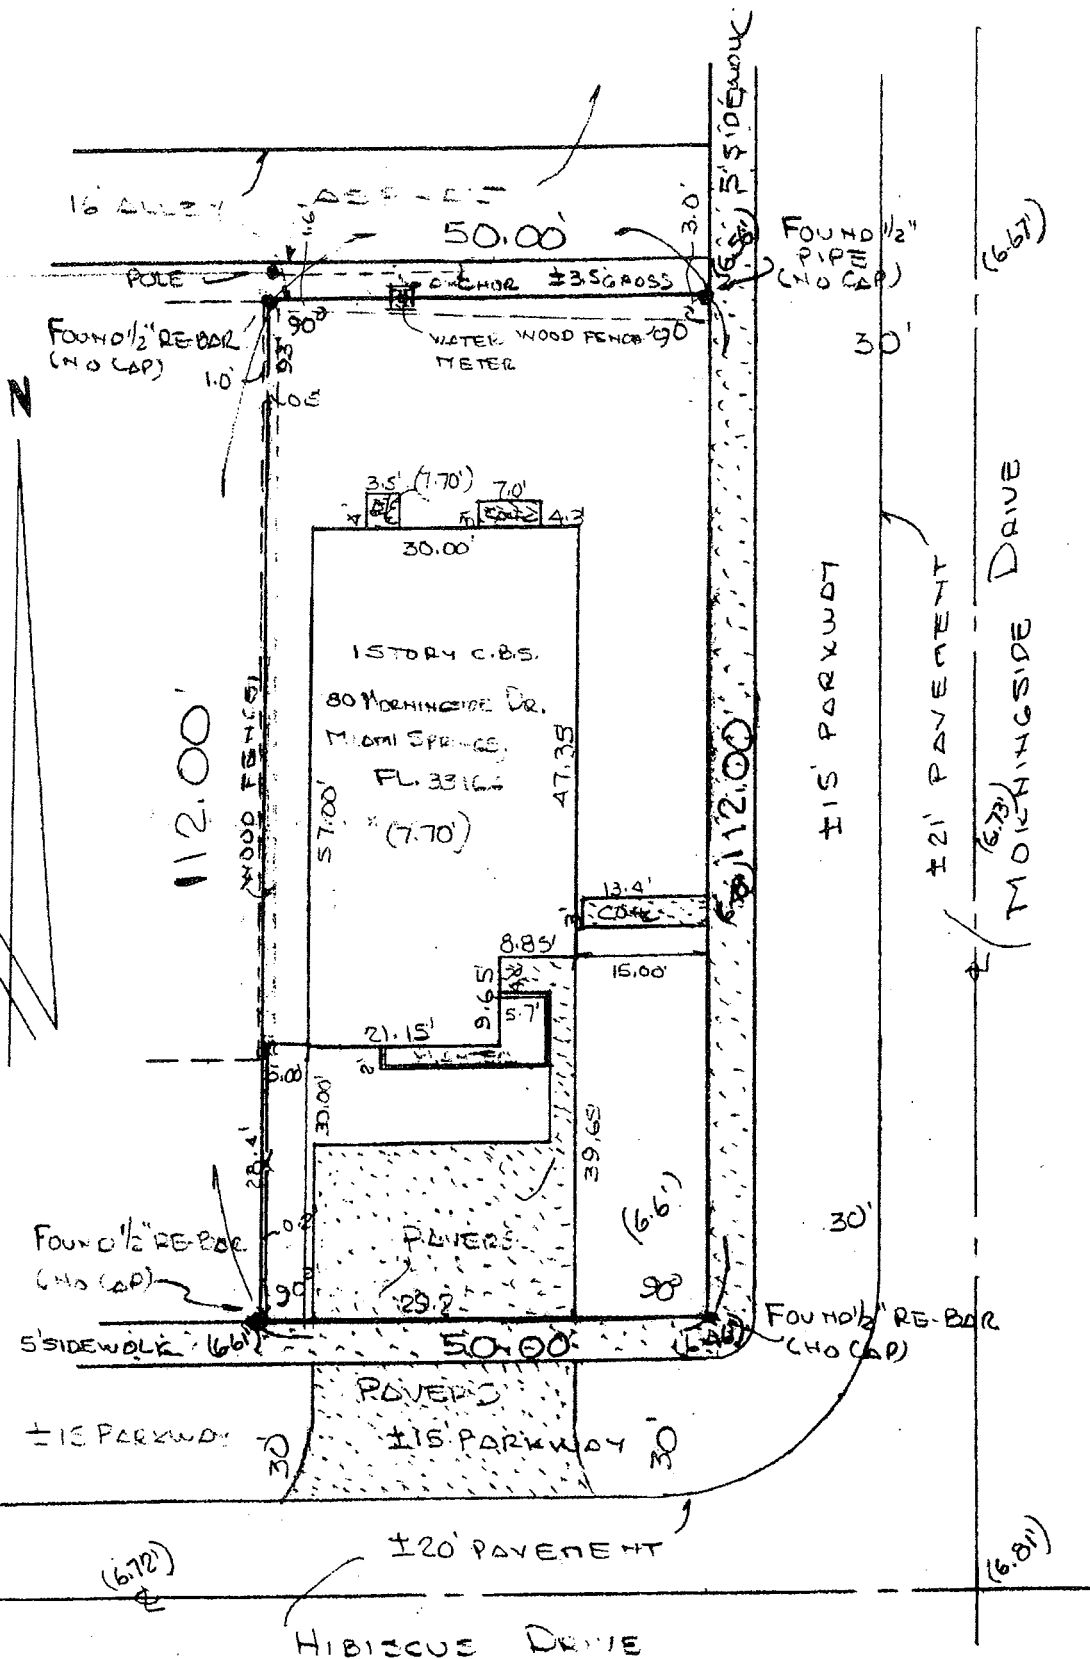 5' SIDEWALK
16' ALLEY
50.00'
1.6'
3.0'
POLE
ANCHOR ±3.5' GRASS
FOUND 1/2"
PIPE
(NO CAP)
(6.67')
FOUND 1/2" RE-BAR
(NO CAP)
90°
WATER
METER
WOOD FENCE
90°
30'
1.0'
N
3.5'
(7.70')
7.0'
4.3
30.00'
1 STORY C.B.S.
80 MORNINGSIDE DR.
MIAMI SPRINGS,
FL. 33166
(7.70')
112.00'
(WOOD FENCE)
57.00'
47.35
112.00'
±15' PARKWAY
±21' PAVEMENT
(6.73')
MORNINGSIDE DRIVE
13.4'
CONC
3'
8.85'
15.00'
9.65
5.7'
21.15'
2'
5.00'
30.00'
28.4'
39.65
(6.6')
30'
FOUND 1/2" RE-BAR
(NO CAP)
0.2'
PAVERS
90°
29.2
90°
FOUND 1/2" RE-BAR
(NO CAP)
5' SIDEWALK
(6.6')
50.00'
PAVERS
±15' PARKWAY
30'
±15' PARKWAY
30'
±20' PAVEMENT
(6.72')
(6.81')
HIBISCUS DRIVE